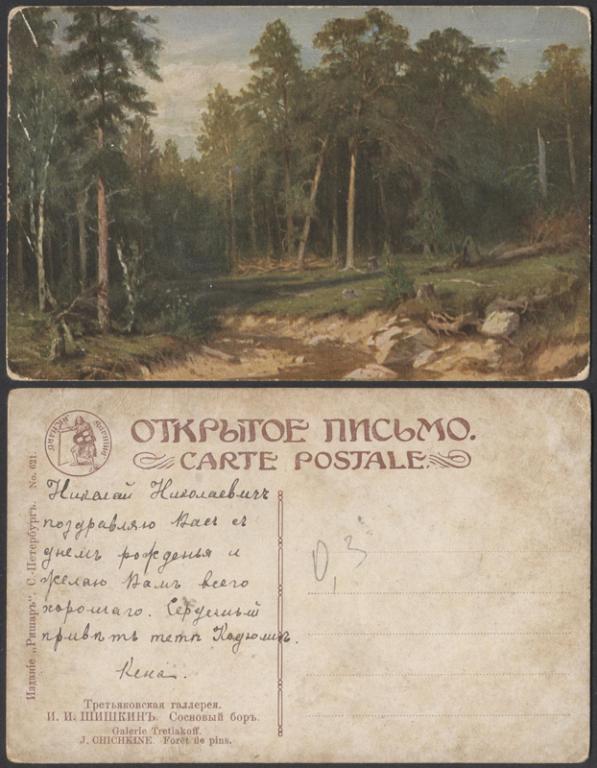 ОТКРЫТОЕ ПИСЬМО.
CARTE POSTALE.
РИШАРЪ
RICHARD
Изданіе „Ришаръ". С.-Петербургъ. No. 621.
Николай Николаевичъ
поздравляю Васъ съ
днемъ рожденья и
желаю Вамъ всего
хорошаго. Сердечный
привѣтъ тетѣ
Кена.
0,3
Третьяковская галлерея.
И. И. ШИШКИНЪ. Сосновый боръ.
Galerie Tretiakoff.
J. CHICHKINE. Forêt de pins.